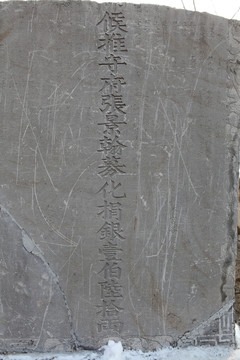 候推守府張景翰募化捐銀壹伯陸拾兩